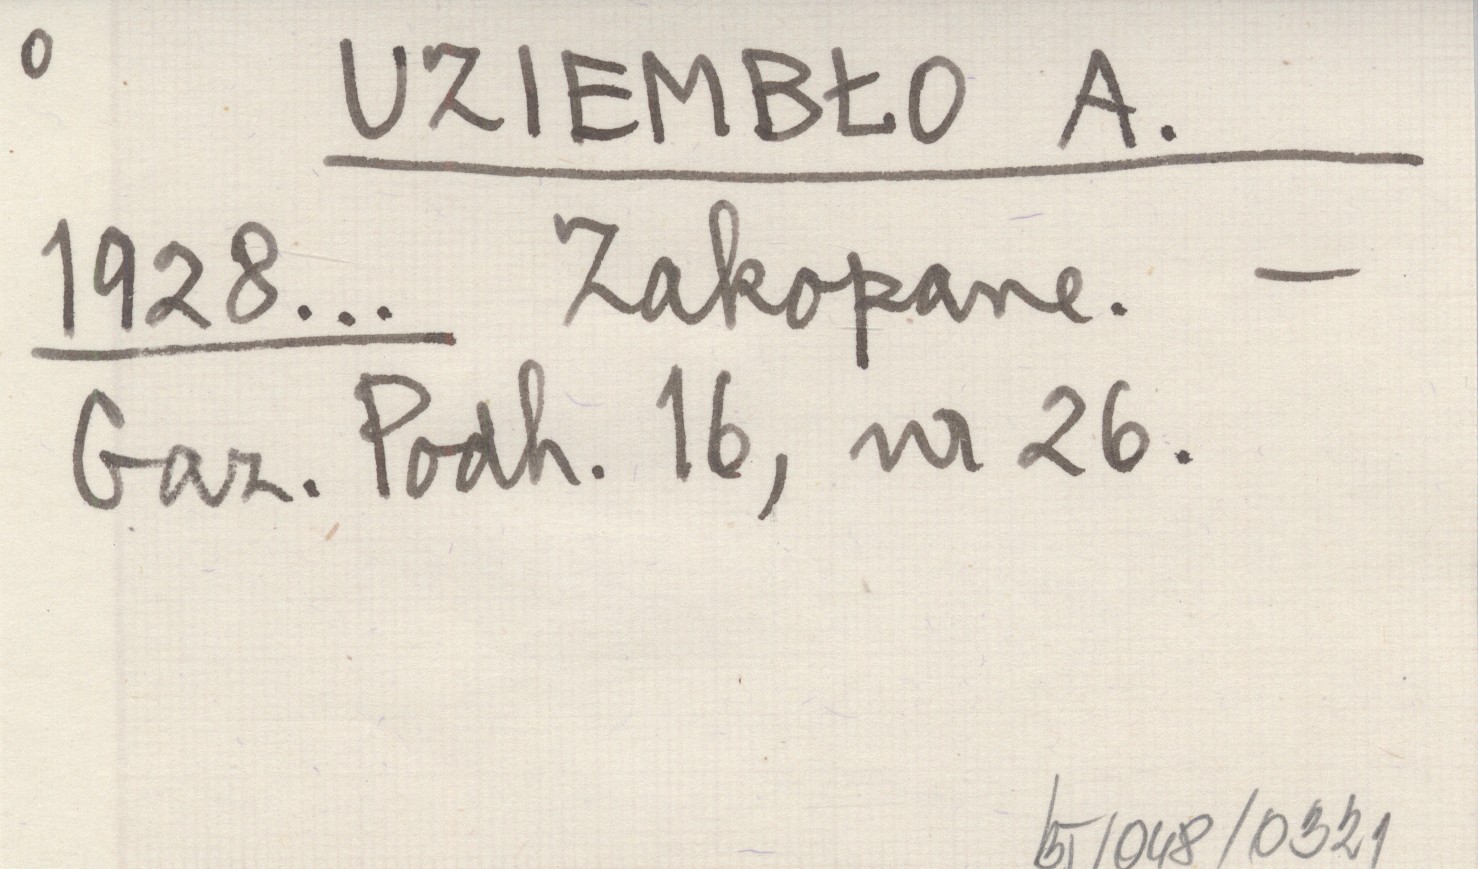 o UZIEMBŁO A.
1928... Zakopane. —
Gaz. Podh. 16, nr 26.
/048/0321